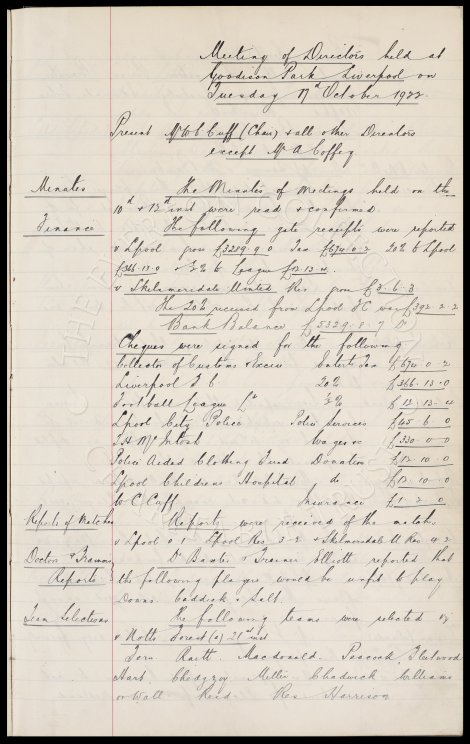 Meeting of Directors held at
Goodison Park Liverpool on
Tuesday 17th October 1922.
Present Mr W C Cuff (Chair) & all other Directors
except Mr A Coffey
Minutes
The Minutes of Meetings held on the
10th & 12th inst were read & confirmed
Finance
The following gate receipts were reported
v Lpool gross £3289.9.0 Tax £674.0.2 20% to Lpool
£366.13.0 & ½% to League £12.13.4.
v Skelmersdale United Res gross £3.6.3
The 20% received from Lpool FC was £392.2.2
Bank Balance £5329.8.7
Cheques were signed for the following
Collector of Customs & Excise Entert. Tax £674.0.2
Liverpool F C 20% £366.13.0
Football League Ld ½% £12.13.4
Lpool City Police Police Services £45.6.0
T. H. McIntosh Wages £330.0.0
Police Aided Clothing Fund Donation £12.10.0
Lpool Childrens Hospital do £12.10.0
W C Cuff Insurance £1.2.0
Reports of Matches
Reports were received of the matches
v Lpool 0.1 Lpool Res 3.2 & Skelmersdale U Res 4.2
Doctor & Trainers
Reports
Dr Baxter & Trainer Elliott reported that
the following players would be unfit to play
Downs Caddick & Salt.
Team Selections
The following teams were selected
v Notts Forest (a) 21st inst
Fern Raitt Macdonald. Peacock Fleetwood
Hart Chedgzoy Miller Chadwick Williams
or Wall Reid. Res Harrison